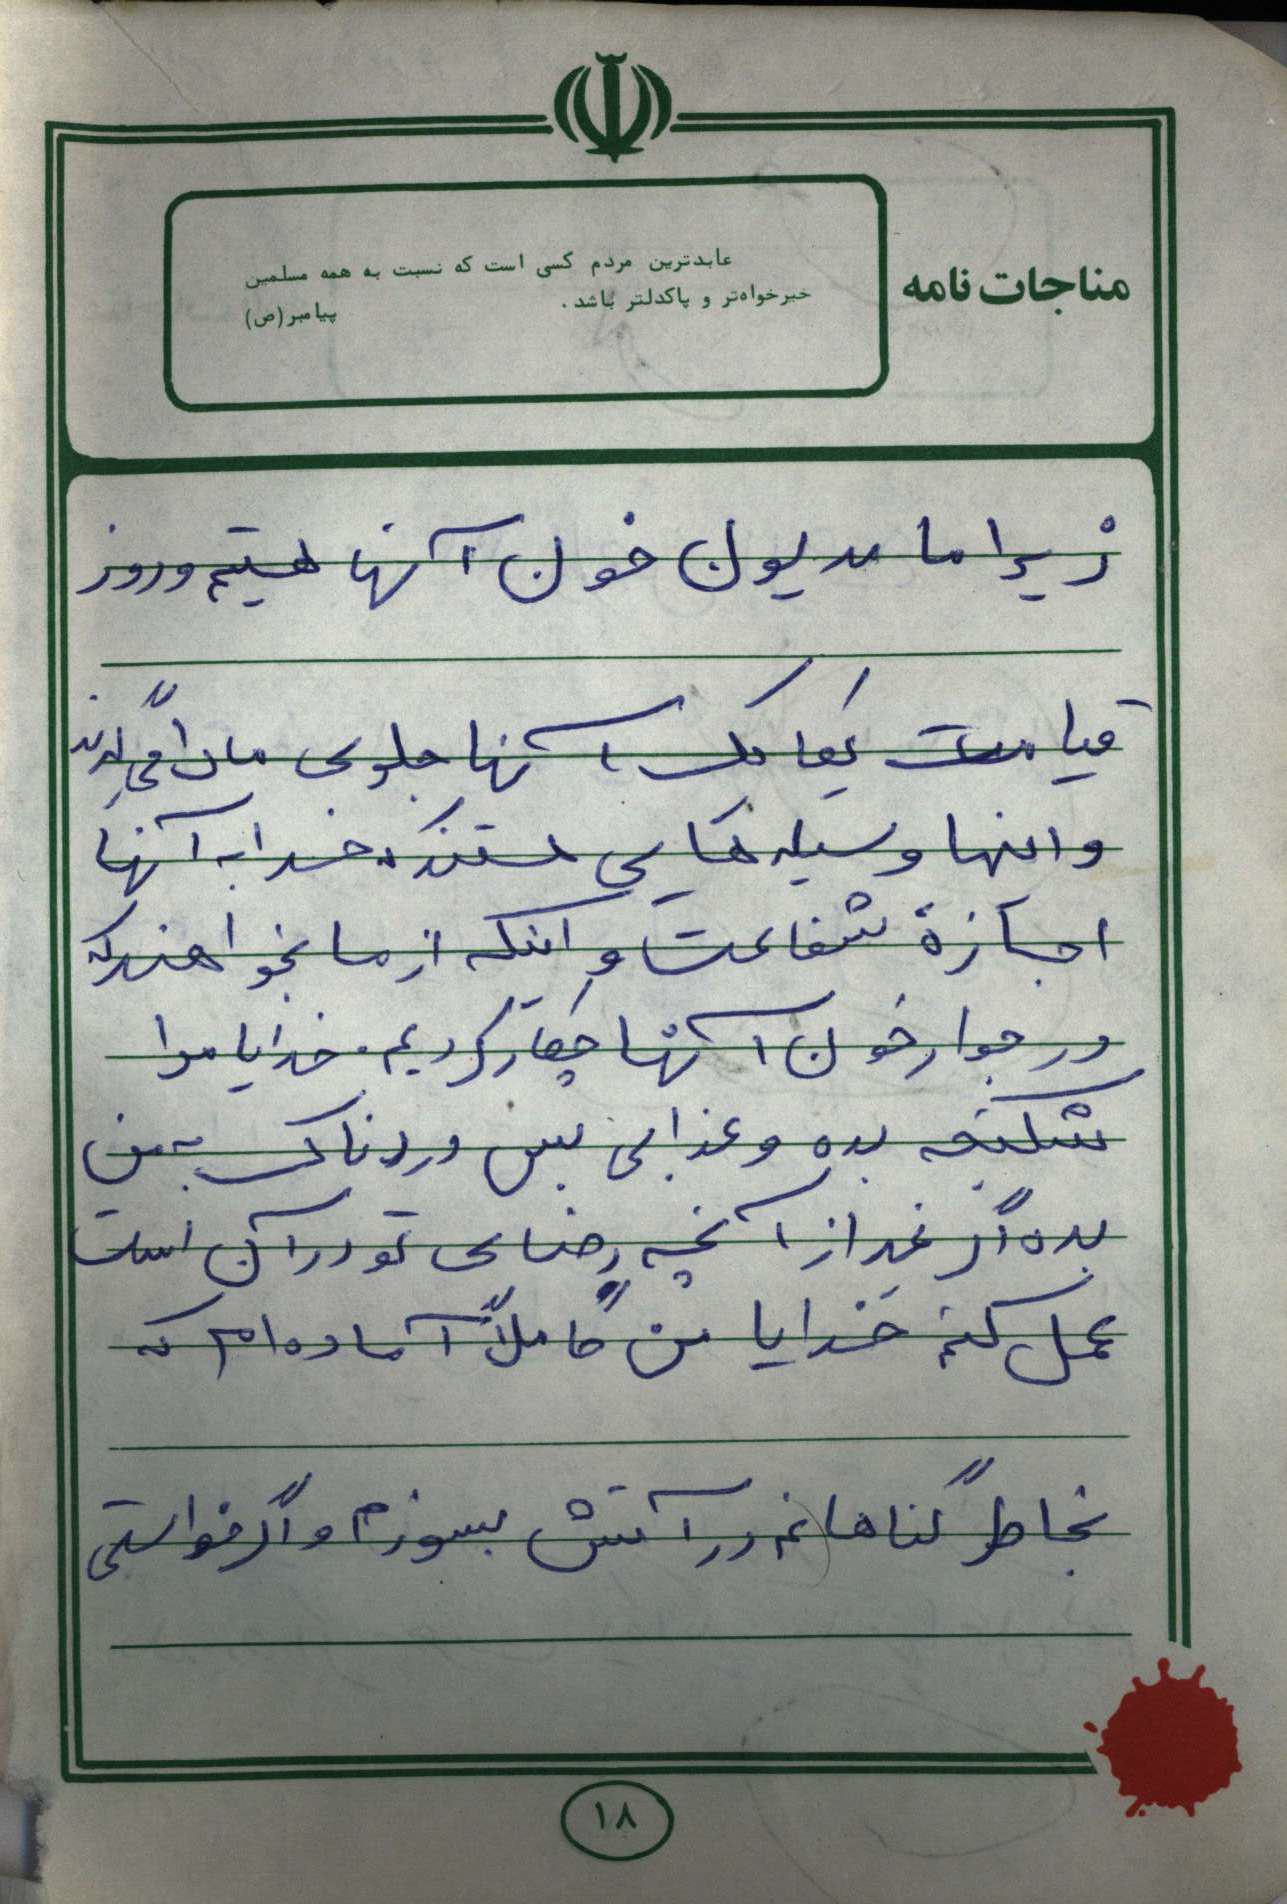 مناجات نامه
عابدترین مردم کسی است که نسبت به همه مسلمین
خیرخواه‌تر و پاکدلتر باشد.
پیامبر(ص)
زیرا ما مدیون خون آنها هستیم و روز
قیامت یکایک آنها جلوی ما را می‌گیرند
و اینها وسیله‌هایی هستند که خدا به آنها
اجازهٔ شفاعت و اینکه از ما بخواهند که
در جوار خون آنها چکار کردیم. خدایا مرا
شکنجه بده و عذابی بس دردناک به من
بده اگر غیر از آنچه رضای تو در آن است
عمل کنم خدایا من کاملاً آماده‌ام که
بخاطر گناهانم در آتش بسوزم و اگر خواستی
۱۸